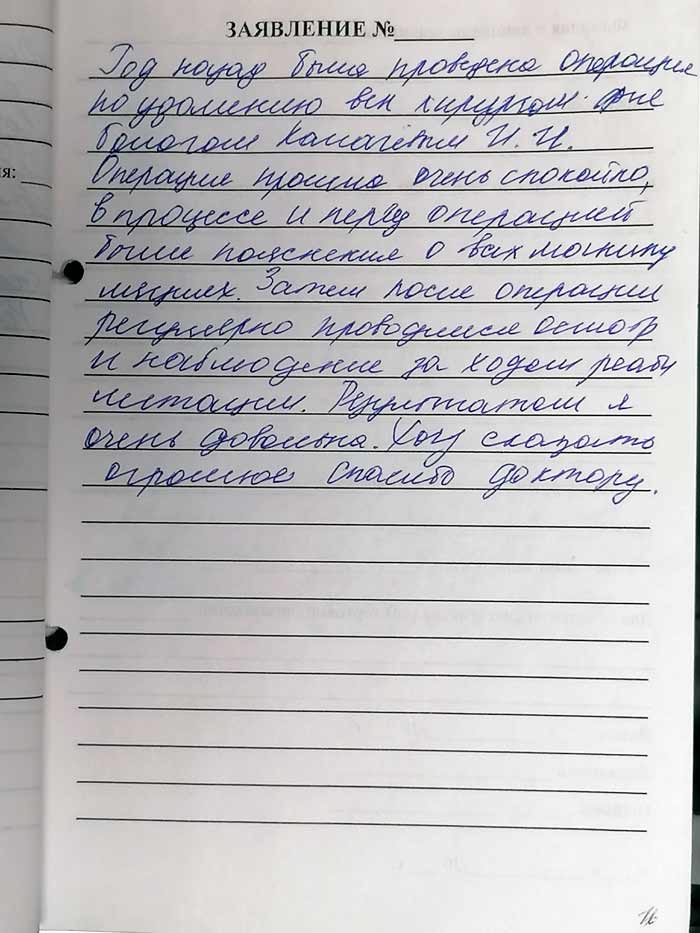 ЗАЯВЛЕНИЕ №
Год назад была проведена операция
по удалению вен хирургом фле
бологом И. И.
Операция прошла очень спокойно,
в процессе и перед операцией
были пояснения о всех манипу
ляциях. Затем после операции
регулярно проводился осмотр
и наблюдение за ходом реаби
литации. Результатом я
очень довольна. Хочу сказать
огромное спасибо доктору.